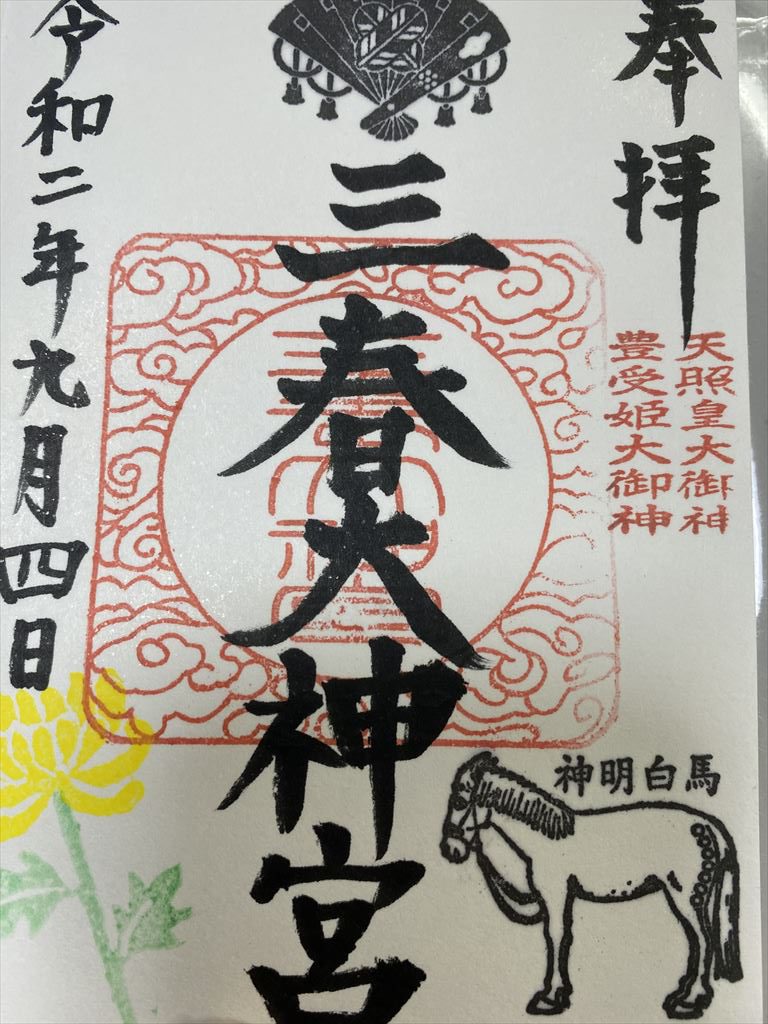 奉拝
天照皇大御神
豊受姫大御神
三春大神宮
神明白馬
令和二年九月四日